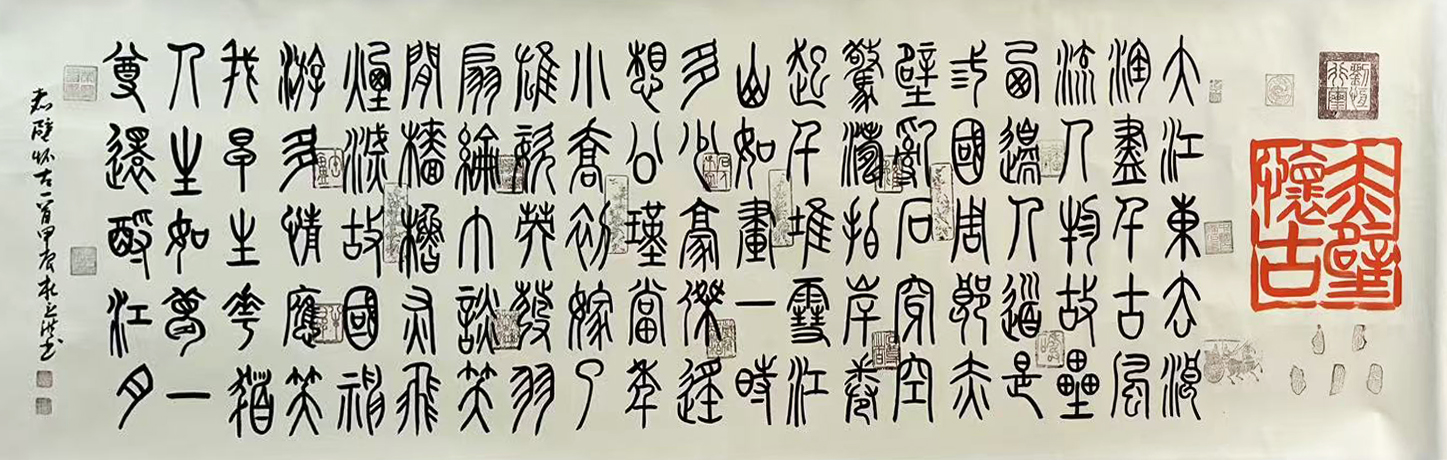 赤壁懷古
大江東去浪
淘盡千古風
流人物故壘
西邊人道是
弎國周郎赤
壁亂石穿空
驚濤拍岸卷
起千堆雪江
山如畫一時
多少豪傑遙
想公瑾當年
小喬初嫁了
雄姿英發羽
扇綸巾談笑
間檣櫓灰飛
煙滅故國神
游多情應笑
我早生華髮
人生如夢一
尊還酹江月
赤壁怀古 甲辰秋